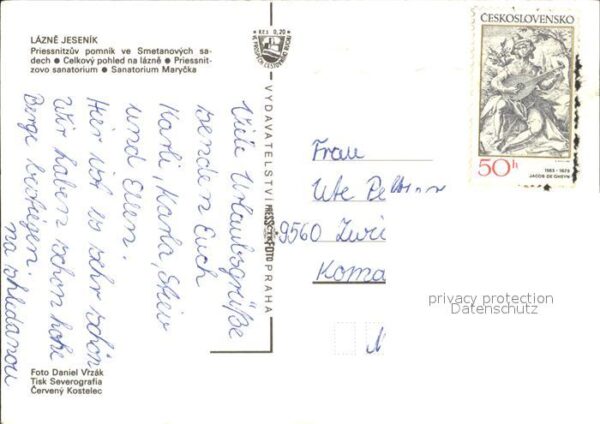 LÁZNĚ JESENÍK
Priessnitzův pomník ve Smetanových sa-
dech ● Celkový pohled na lázně ● Priessnit-
zovo sanatorium ● Sanatorium Maryčka
Kčs 0,20
VYDAVATELSTVÍ PRESSFOTO PRAHA
ČESKOSLOVENSKO
50h
JACOB DE GHEYN
Viele Urlaubsgrüße
senden Euch
Karli, Karla,
und Ellen.
Hier ist es sehr schön
Wir haben schon hohe
Berge bestiegen.
na shledanou
Frau
Ute
9560
privacy protection
Datenschutz
Foto Daniel Vrzák
Tisk Severografia
Červený Kostelec